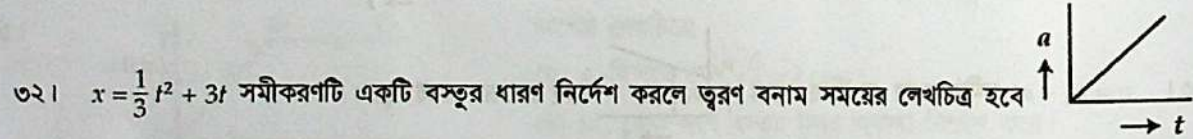 ৩২। x = \frac{1}{3} t² + 3t সমীকরণটি একটি বস্তুর ধারণ নির্দেশ করলে ত্বরণ বনাম সময়ের লেখচিত্র হবে
a
t